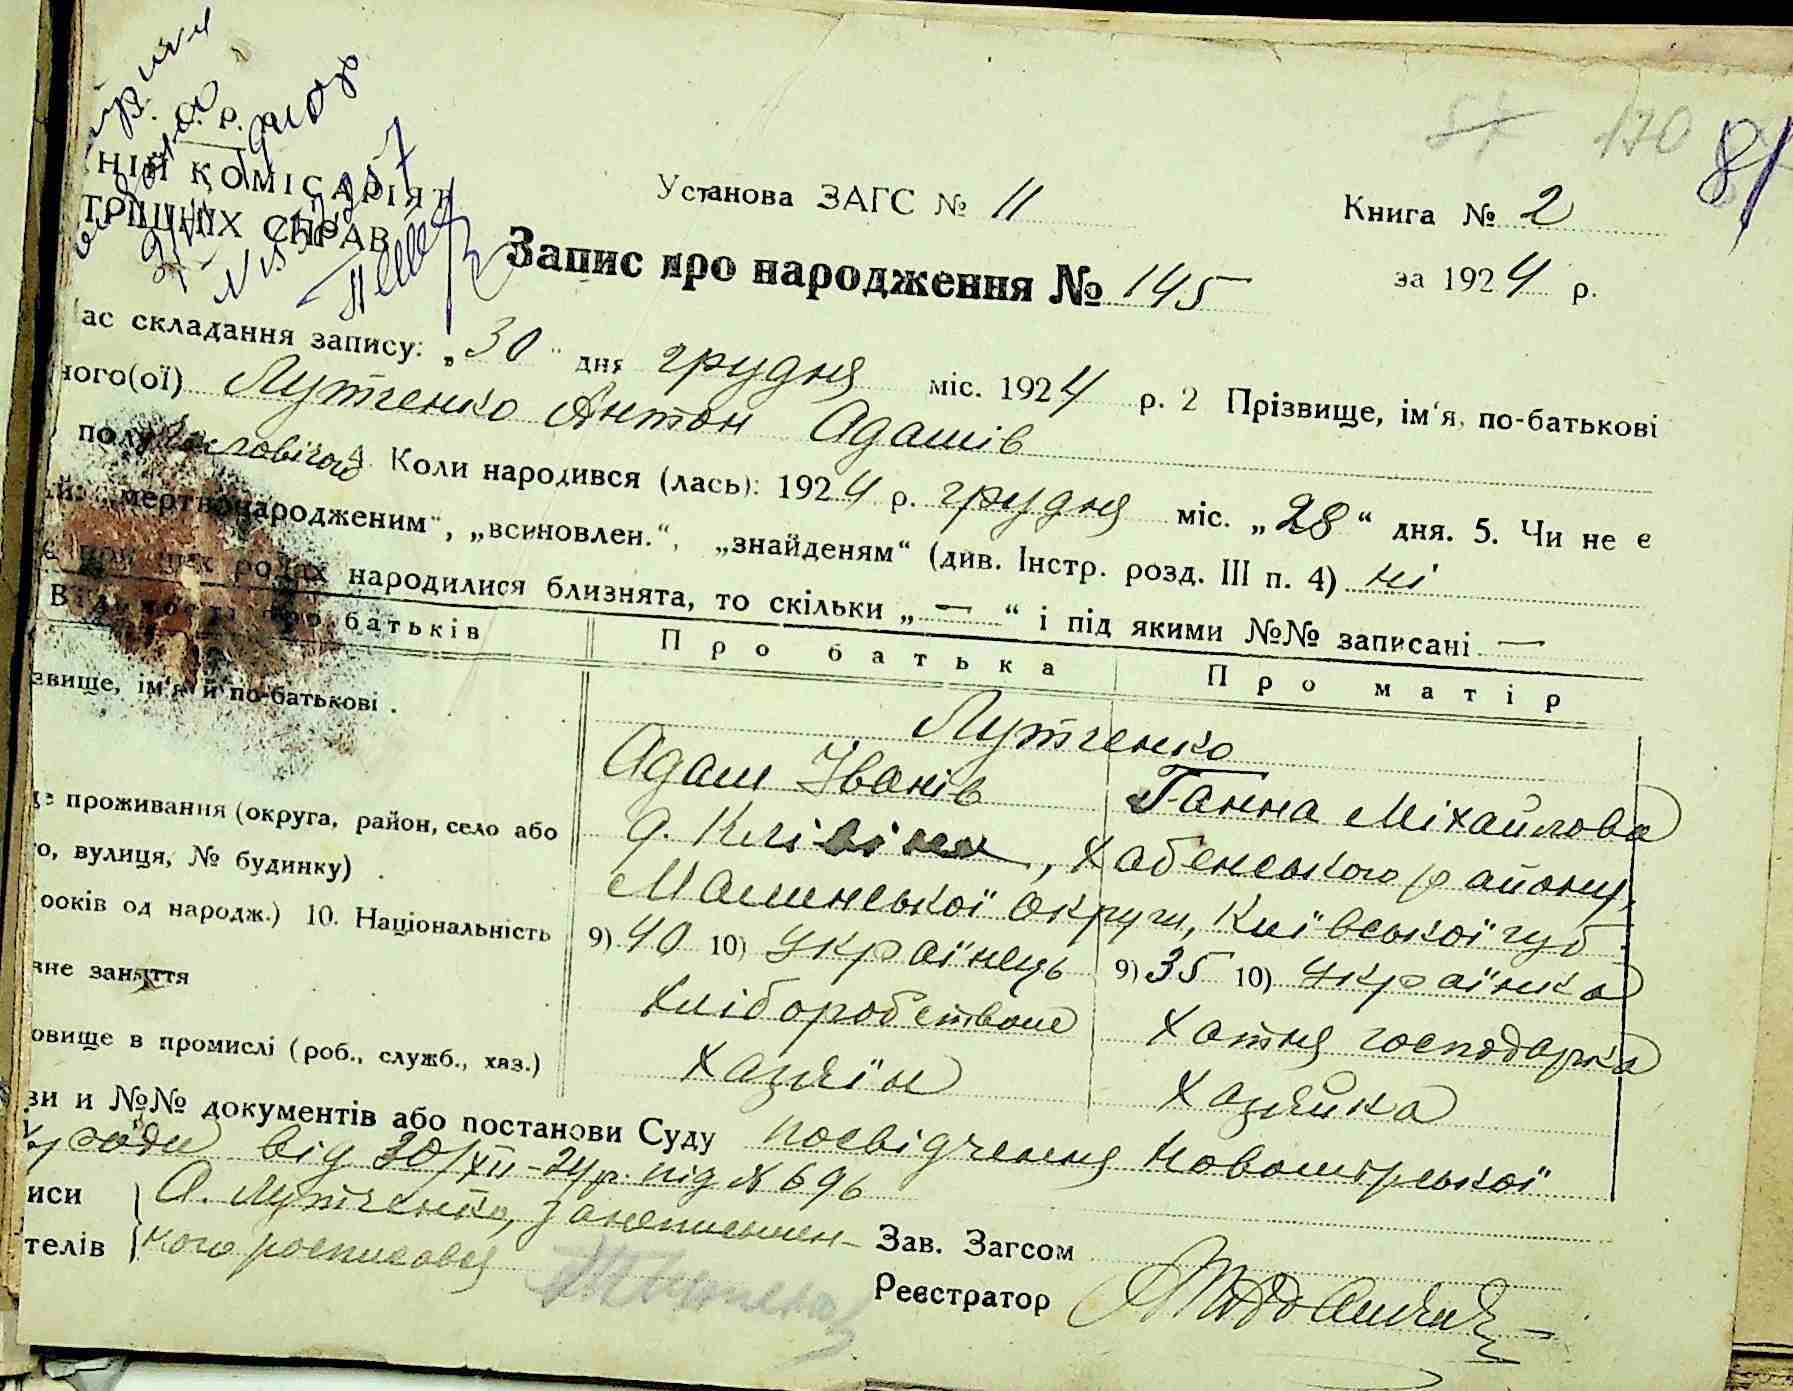 87 170 81
НІЙ КОМІСАРІЯТ
ТРІШНІХ СПРАВ
1957
Установа ЗАГС № 11
Книга № 2
Запис про народження № 145
за 1924 р.
ас складання запису: „30" дня грудня міс. 1924 р. 2 Прізвище, ім'я, по-батькові
ного(ої) Лутченко Антон Адамів
полу чоловічого 4. Коли народився (лась): 1924 р. грудня міс. „28" дня. 5. Чи не є
й: „мертвонародженим", „всиновлен.", „знайденям" (див. Інстр. розд. III п. 4) ні
родах народилися близнята, то скільки „—" і під якими №№ записані —
Відомости про батьків
Про батька
Про матір
звище, ім'я й по-батькові .
Лутченко
Адам Іванів
Ганна Міхайлова
це проживання (округа, район, село або
го, вулиця, № будинку) .
с. Клівіни, Хабенського району,
Малинської округи, Київської губ.
років од народж.) 10. Національність
9) 40 10) Українець
9) 35 10) Українка
вне заняття
хліборобством
хатня господарка
овище в промислі (роб., служб., хаз.)
хазяїн
хазяйка
ви и №№ документів або постанови Суду посвідчення Новомирської
с/ради від 30/XII-24 р. під № 696
иси
телів
А. Лутченко, за неписьмен-
ного росписався
Зав. Загсом
Реєстратор